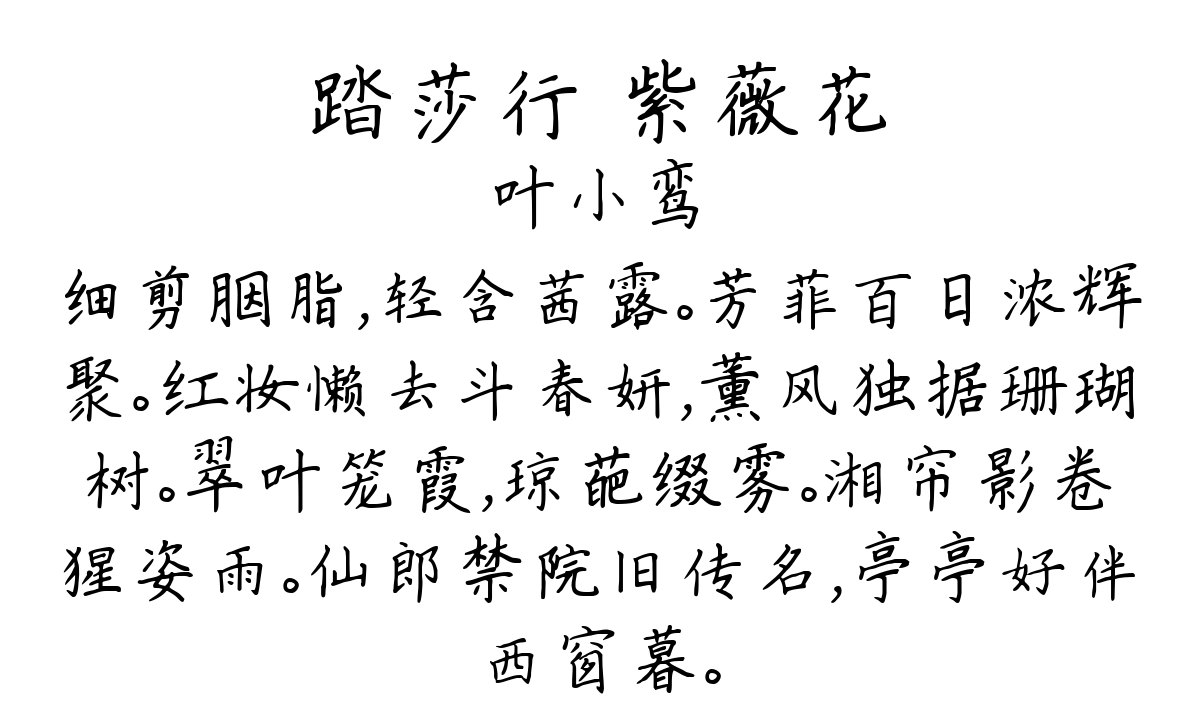 踏莎行 紫薇花
叶小鸾
细剪胭脂,轻含茜露。芳菲百日浓辉
聚。红妆懒去斗春妍,薰风独据珊瑚
树。翠叶笼霞,琼葩缀雾。湘帘影卷
猩姿雨。仙郎禁院旧传名,亭亭好伴
西窗暮。